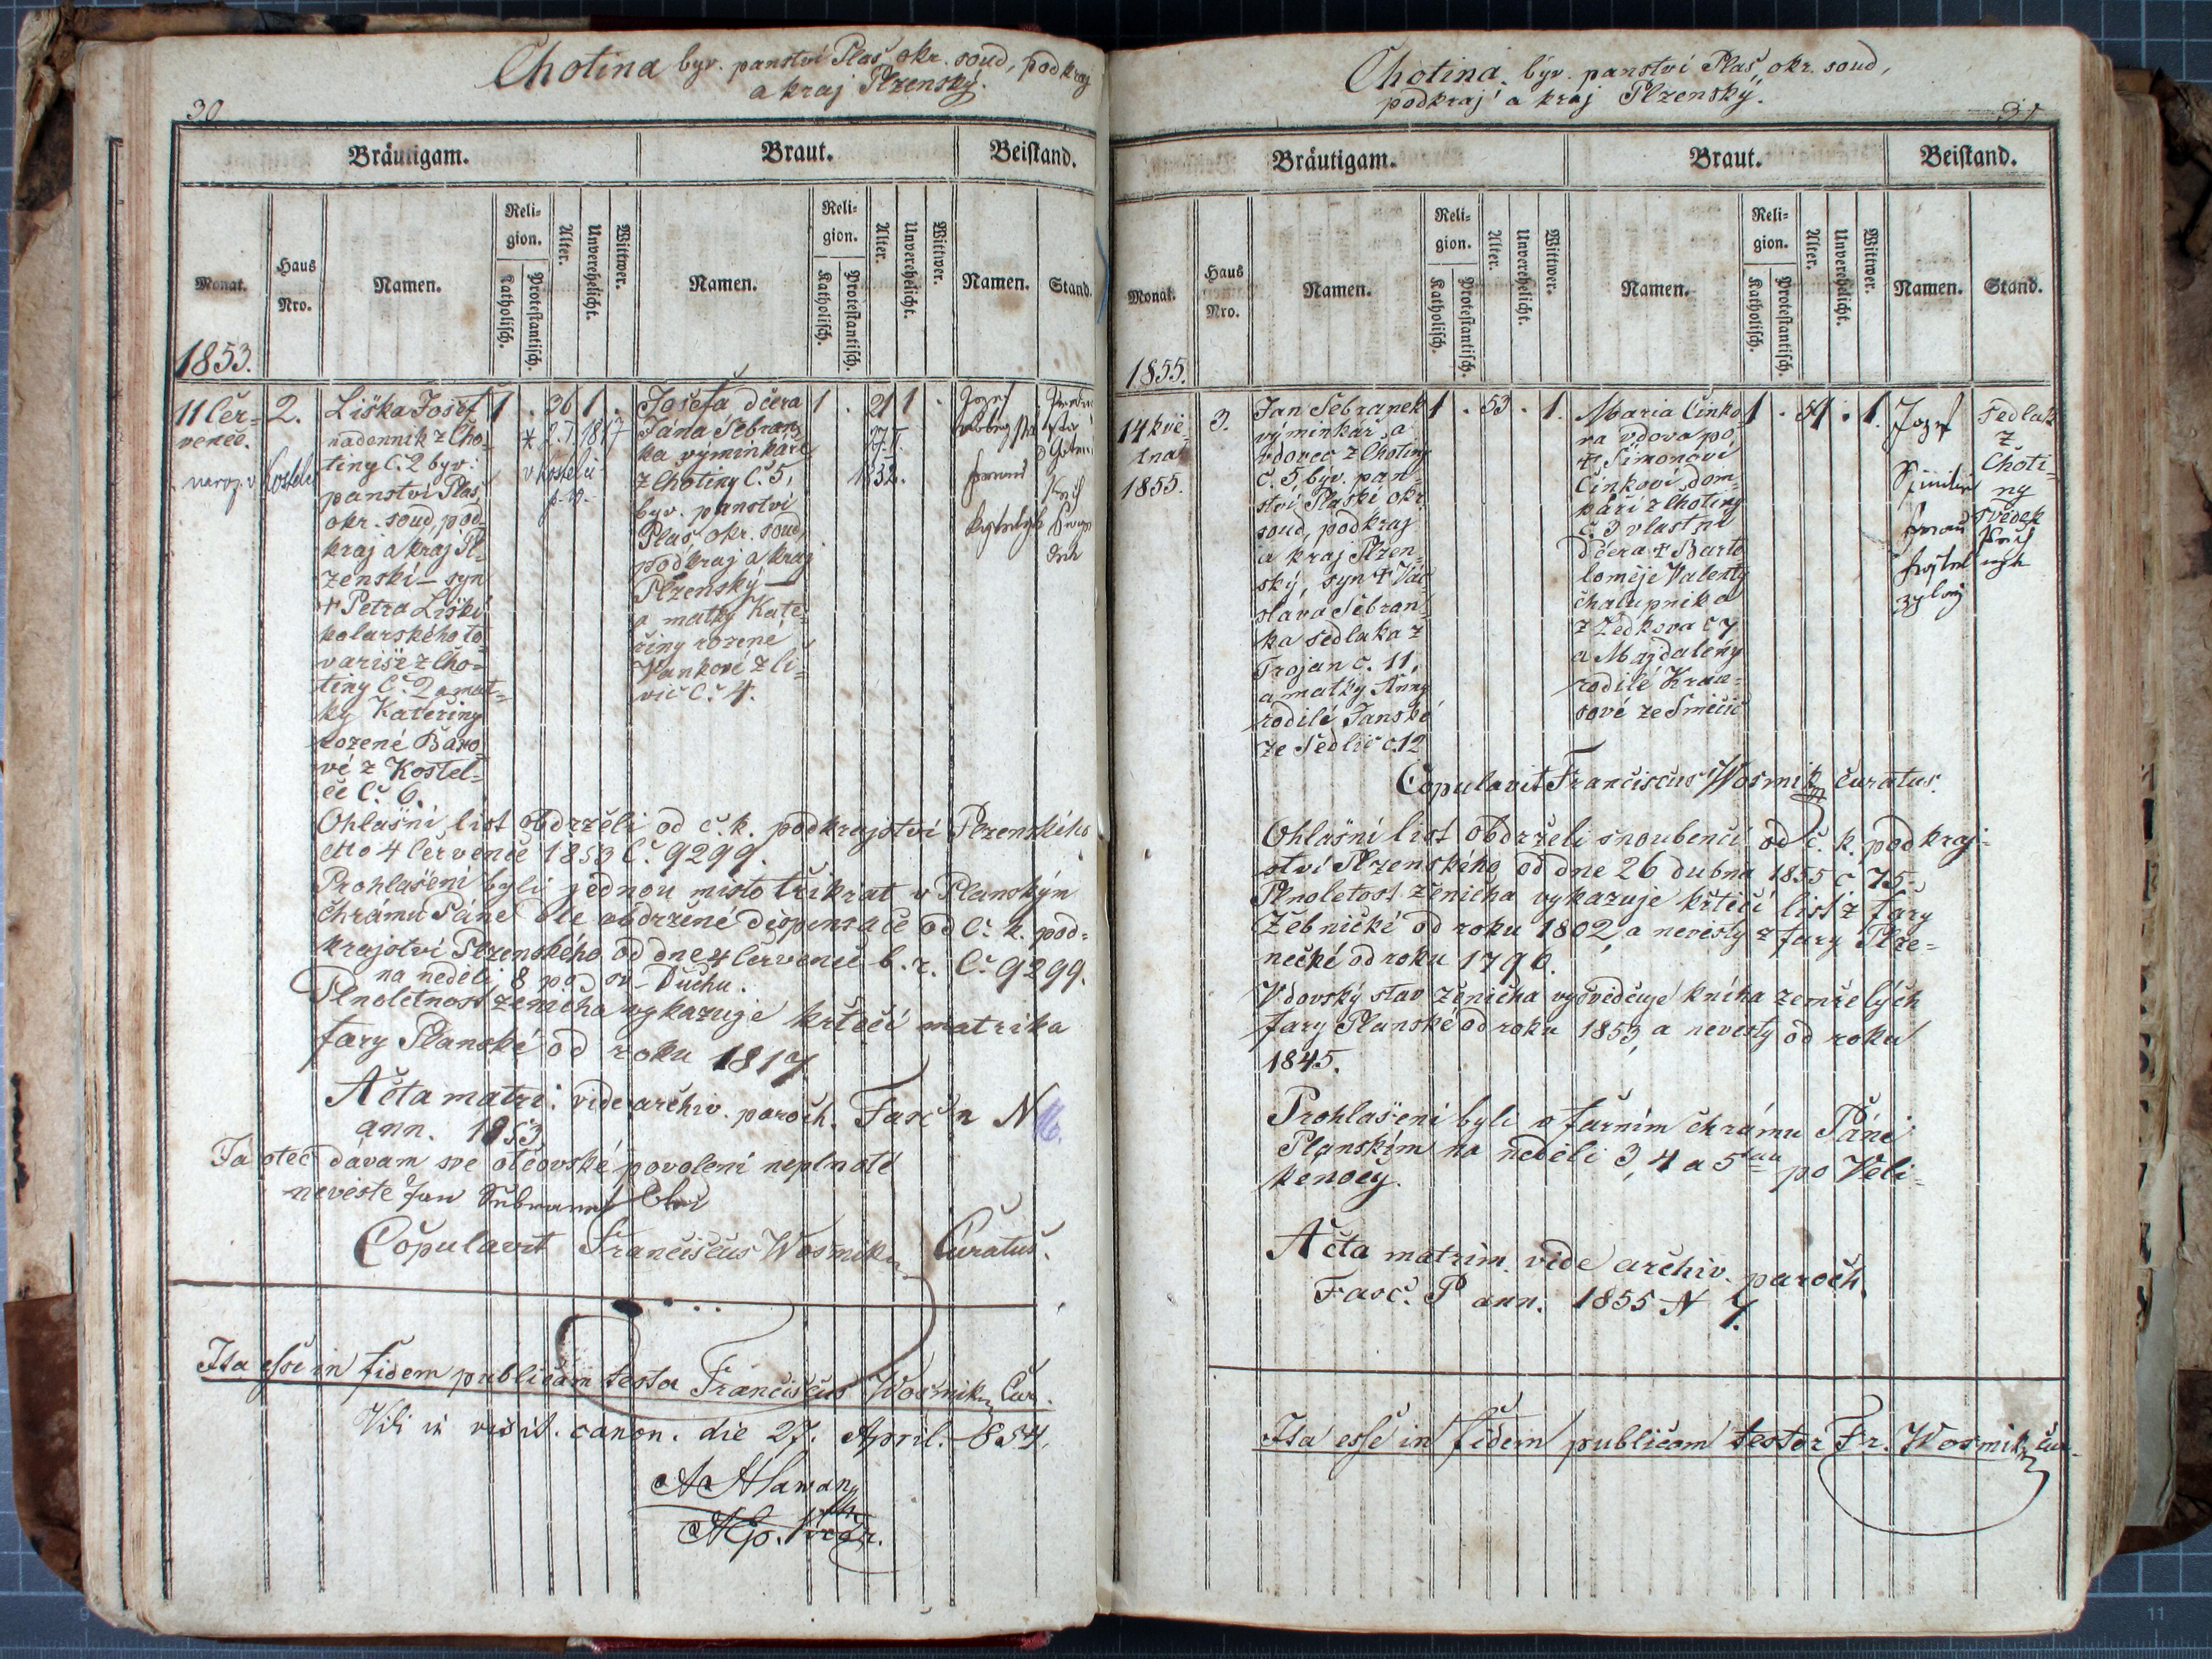 Chotina byv. panství Plas, okr. soud, podkraj
a kraj Plzenský.
30
Bräutigam.
Braut.
Beistand.
Monat.
Haus
Nro.
Namen.
Reli-
gion.
Katholisch.
Protestantisch.
Alter.
Unverehelicht.
Wittwer.
Namen.
Reli-
gion.
Katholisch.
Protestantisch.
Alter.
Unverehelicht.
Wittwer.
Namen.
Stand.
1853.
11 čer-
vence.
naroz. v Kostelci
2.
Liška Josef
nadenník z Cho-
tiny č. 2 byv.
panství Plas,
okr. soud, pod-
kraj a kraj Pl-
zenskí – syn
† Petra Lišky
kolarského to-
varise z Cho-
tiny č. 2 a mat-
ky Kateřiny
rozené Baro-
vé z Kostel-
ce č. 6.
1 . 36 1 .
* 2. I. 1817
v Kostelci
Josefa dcera
Jana Sebran-
ka výminkáře
z Chotiny č. 5,
byv. panství
Plas, okr. soud,
podkraj a kraj
Plzenský –
a matky Kate-
řiny rozené
Vankové z Li-
vic č. 4.
1 . 21 1 .
1832.
Jozef
Ohlašní list obdrželi od c. k. podkrajství Plzenského
dtto 4 července 1853 č. 9299.
Prohlašeni byli jednou místo třikrat v Planskym
chrámu Páně dle obdržené dispensace od c. k. pod-
krajství Plzenského od dne 4 července b. r. č. 9299.
na neděli 8 po sv. Duchu.
Plnoletnost ženicha vykazuje křtecí matrika
fary Planské od roku 1817
Acta matri. vide archiv. paroch. Fasc. n N
ann. 1853.
Ja otec dávam své otcovské povoleni neplnoté
nevěstě Jan
Copulavit Franciscus Wosmik Curatus.
Ita esse in fidem publicam testor Franciscus Wosmik Cur.
Vidi in visit. canon. die 27. April. 854.
Chotina, býv. panství Plas, okr. soud,
podkraj a kraj Plzenský.
31
Bräutigam.
Braut.
Beistand.
Monat.
Haus
Nro.
Namen.
Reli-
gion.
Katholisch.
Protestantisch.
Alter.
Unverehelicht.
Wittwer.
Namen.
Reli-
gion.
Katholisch.
Protestantisch.
Alter.
Unverehelicht.
Wittwer.
Namen.
Stand.
1855.
14 kvě-
tna
1855.
3.
Jan Sebranek
výminkář a
vdovec z Chotiny
č. 5, byv. pan-
ství Plaské okr.
soud, podkraj
a kraj Plzen-
ský, syn † Vác-
slava Sebran-
ka sedlaka z
Trojan č. 11,
a matky Anny
rodilé Janské
ze Sedlic č. 12
1 . 53 . 1.
Maria Cinko-
va vdova po
† Šimonovi
Cinkovi dom-
káři z Chotiny
č. 3 vlastní
dcera † Barto-
loměje Valenty
chalupníka
z Zedkova č 7
a Majdalény
rodilé Krau-
sové ze Smečic
1 . 59 . 1.
Jozef
Sedlak
z
Choti-
ny
svědek
Copulavit Franciscus Wosmik Curatus.
Ohlašní list obdrželi snoubenci od c. k. podkraj-
ství Plzenského od dne 26 dubna 1855 č 75
Plnoletost ženicha vykazuje křtecí list z fary
Žebnické od roku 1802, a nevěsty z fary Plze-
necké od roku 1796.
Vdovský stav ženicha vysvědčuje kniha zemřelých
fary Planské od roku 1853, a nevěsty od roku
1845.
Prohlašeni byli v farním chrámu Páně
Planském na neděli 3, 4 a 5tau po Veli-
kénocy.
Acta matrim. vide archiv. paroch.
Fasc. P ann. 1855 N 7.
Ita esse in fidem publicam testor Fr. Wosmik Cur.